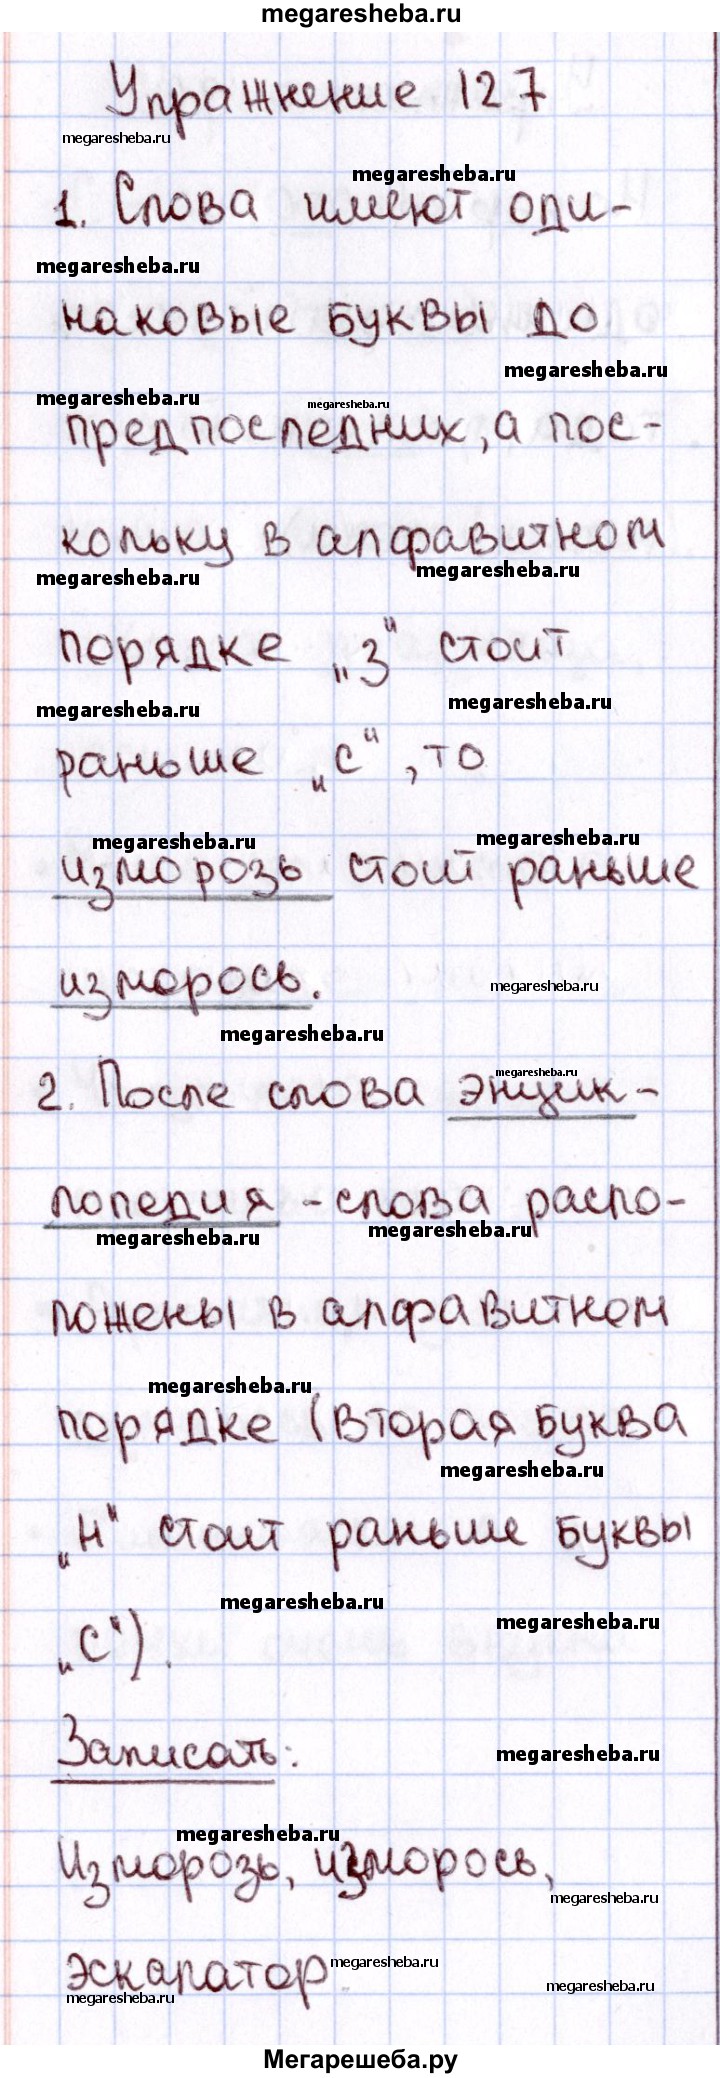 megaresheba.ru
Упражнение 127
megaresheba.ru
megaresheba.ru
1. Слова имеют оди-
megaresheba.ru
наковые буквы до
megaresheba.ru
megaresheba.ru
megaresheba.ru
предпоследних, а пос-
кольку в алфавитном
megaresheba.ru
megaresheba.ru
порядке „З" стоит
megaresheba.ru
megaresheba.ru
раньше „с", то
megaresheba.ru
megaresheba.ru
изморозь стоит раньше
изморось.
megaresheba.ru
megaresheba.ru
megaresheba.ru
2. После слова энцик-
лопедия - слова распо-
megaresheba.ru
megaresheba.ru
ложены в алфавитном
megaresheba.ru
порядке (вторая буква
megaresheba.ru
„Н" стоит раньше буквы
megaresheba.ru
megaresheba.ru
„С").
Записать:
megaresheba.ru
megaresheba.ru
Изморозь, изморось,
megaresheba.ru
эскалатор.
megaresheba.ru
megaresheba.ru
megaresheba.ru
Мегарешеба.ру